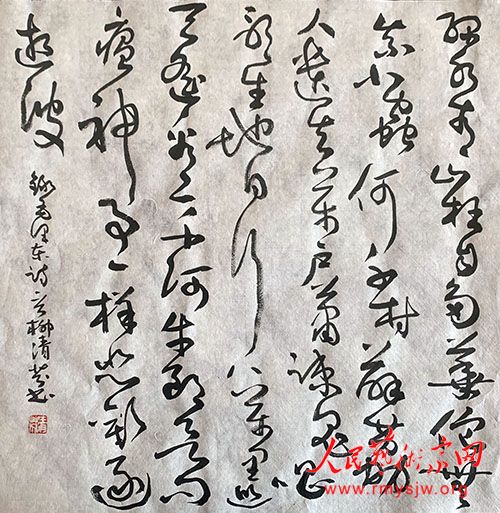 绿水青山枉自多華佗無
奈小蟲何千村薜荔
人遗矢万户蕭疎鬼唱
歌坐地日行八万里巡
天遥看一千河牛郎欲问
瘟神事一样悲歡逐
逝波
錄毛泽东诗一首柳清
人民藝術家网
www.rmysjw.org